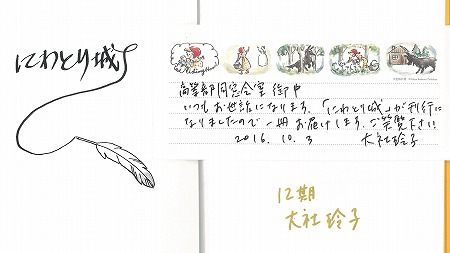 にわとり城
高等部同窓会室 御中
いつもお世話になります。「にわとり城」が刊行に
なりましたので一冊お届けします。ご笑覧下さい!
2016.10.3 大社玲子
12期
大社玲子